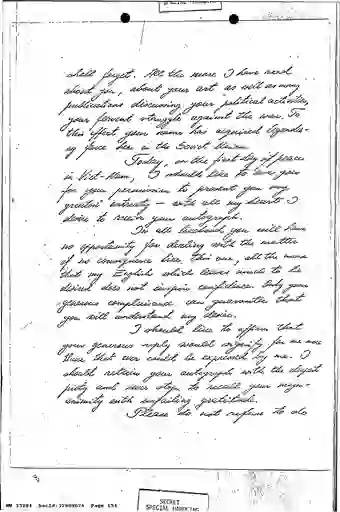 shall forget. All the more I have read
about you, about your art as well as many
publications discussing your political activities,
your fervent struggle against the war. To
this effect your name has acquired legenda-
ry fame here in the Soviet Union.
Today, on the first day of peace
in Viet-Nam, I should like to ask you
for your permission to present you my
greatest entreaty — with all my heart I
desire to receive your autograph.
In all likelihood you will have
no opportunity for dealing with the matter
of no consequence like this one, all the more
that my English which leaves much to be
desired does not inspire confidence. Only your
generous complaisance can guarantee that
you will understand my desire.
I should like to affirm that
your generous reply would signify for me more
than that could be expressed by me. I
should retain your autograph with the deepest
piety and never stop to recall your magn-
animity with unfailing gratitude.
Please do not refuse to do
Page 131
SECRET
SPECIAL HANDLING